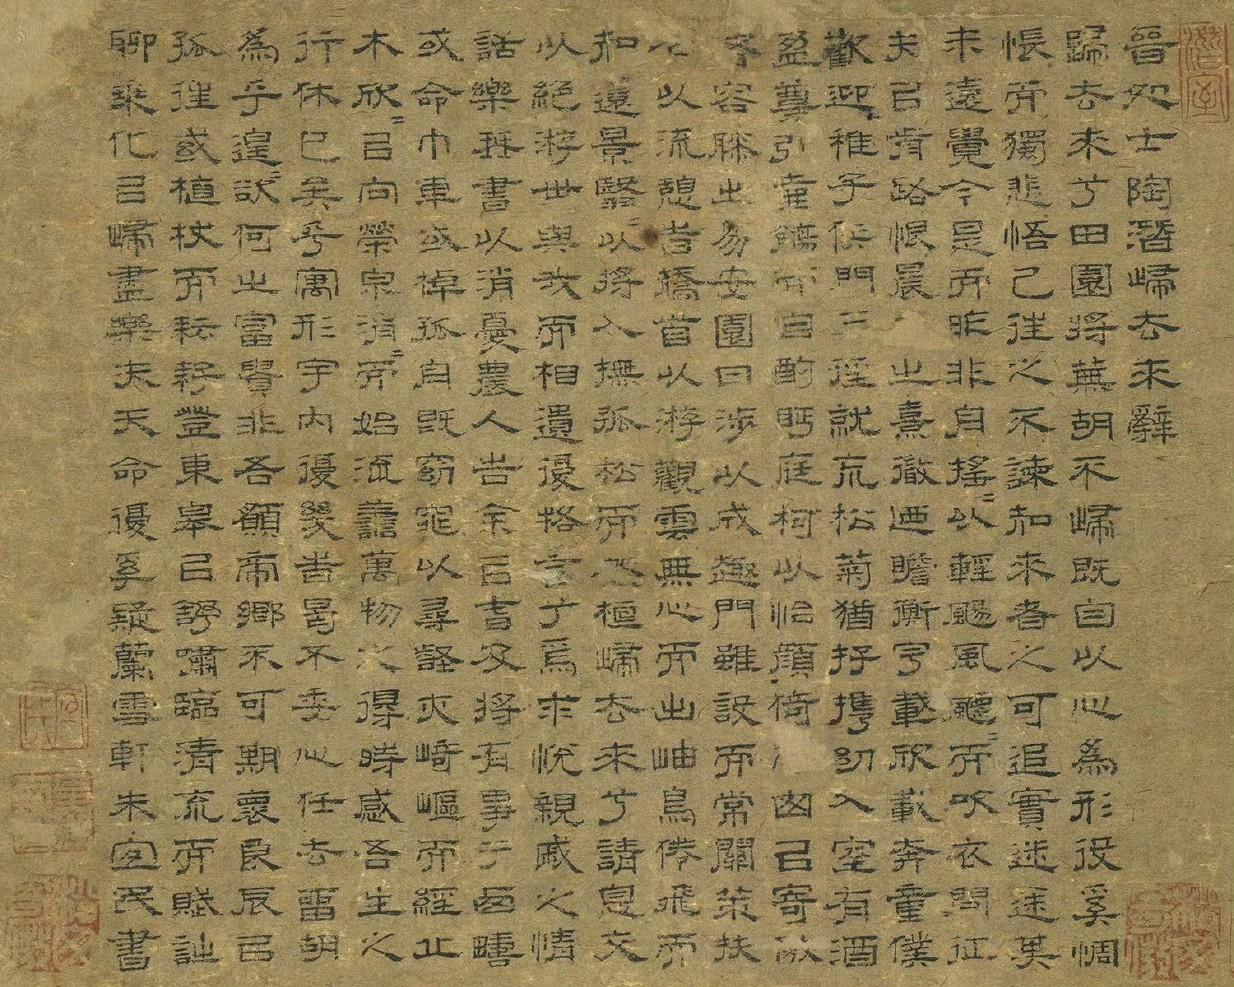 晉処士陶潛歸去来辭
歸去来兮田園將蕪胡不歸既自以心為形役奚惆
悵而獨悲悟已往之不諫知来者之可追實迷途其
未遠覺今是而昨非舟搖〻以輕颺風飄〻而吹衣問征
夫以前路恨晨之熹微迺瞻衡宇載欣載奔童僕
歡迎稚子候門三逕就荒松菊猶存攜幼入室有酒
盈尊引壺觴而自酌眄庭柯以怡顏倚囪以寄傲
容膝之易安園日涉以成趣門雖設而常關策扶
以流憩時矯首以游觀雲無心而出岫鳥倦飛而
知還景翳〻以將入撫孤松而盤桓歸去来兮請息交
以絕游世與我而相遺復輅言兮焉求悅親戚之情
話樂琴書以消憂農人告余以春及將有事于西疇
或命巾車或棹孤舟既窈窕以尋壑亦崎嶇而經丘
木欣〻以向榮泉涓〻而始流善萬物之得時感吾生之
行休已矣乎寓形宇内復幾時曷不委心任去留胡
為乎遑〻欲何之富貴非吾願帝鄉不可期懷良辰以
孤往或植杖而耘耔登東皋以舒嘯臨清流而賦詩
聊乘化以歸盡樂夫天命復奚疑蘭雪軒民書